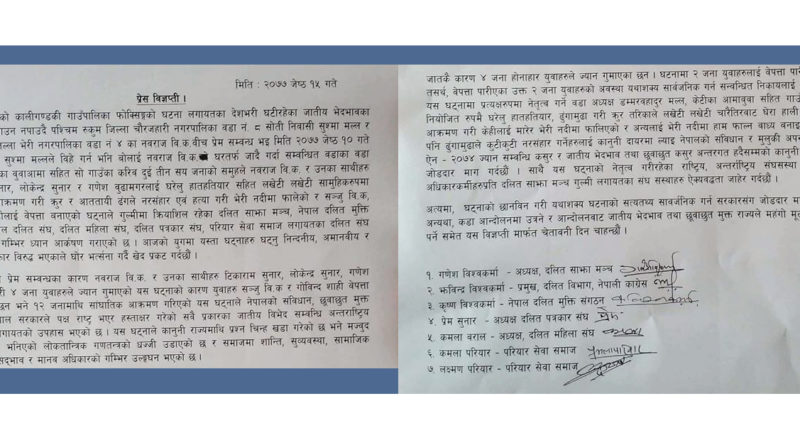 मिति : २०७७ जेष्ठ १५ गते
प्रेस विज्ञप्ती ।
को कालीगण्डकी गाउँपालिका फोक्सिङ्को घटना लगायतका देशभरी घटीरहेका जातीय भेदभावका
ाउन नपाउदै पश्चिम रुकुम जिल्ला चौरजहारी नगरपालिका वडा नं. ८ सोती निवासी सुश्मा मल्ल र
जल्ला भेरी नगरपालिका वडा नं ४ का नवराज वि.क.वीच प्रेम सम्वन्ध भइ मिति २०७७ जेष्ठ १० गते
सुश्मा मल्लले विहे गर्न भनि बोलाई नवराज वि.क. घरतर्फ जादै गर्दा सम्वन्धित वडाका वडा
का बुवाआमा सहित सो गाउँका करिव दुई तीन सय जनाको समुहले नवराज वि.क. र उनका साथीहरु
सुनार, लोकेन्द्र सुनार र गणेश बुढामगरलाई घरेलु हातहतियार सहित लखेटी लखेटी सामुहिकरुपमा
ाक्रमण गरी क्रुर र आततायी ढंगले नरसंहार एवं हत्या गरी भेरी नदीमा फालेको र सञ्जु वि.क,
ोलाई वेपत्ता वनाएको घट्नाले गुल्मीमा क्रियाशिल रहेका दलित साभा मञ्च, नेपाल दलित मुक्ति
दलित संघ, दलित महिला संघ, दलित पत्रकार संघ, परियार सेवा समाज लगायतका दलित संघ
गम्भिर ध्यान आर्कषण गराएको छ । आजको युगमा यस्ता घट्नाहरु घट्नु निन्दनीय, अमानवीय र
कार विरुद्द भएकाले घोर भर्त्सना गर्दै खेद प्रकट गर्दछौं ।
प्रेम सम्वन्धका कारण नवराज वि.क. र उनका साथीहरु टिकाराम सुनार, लोकेन्द्र सुनार, गणेश
री ४ जना युवाहरुले ज्यान गुमाएको यस घट्नाको कारण युवाहरु सञ्जु वि.क र गोविन्द शाही वेपत्ता
छन भने १२ जनामाथि सांघातिक आक्रमण गरिएको यस घट्नाले नेपालको संविधान, छुवाछुत मुक्त
पाल सरकारले पक्ष राष्ट्र भएर हस्ताक्षर गरेको सवै प्रकारका जातीय विभेद सम्बन्धि अन्तराष्ट्रिय
गायतको उपहास भएको छ । यस घट्नाले कानुनी राज्यमाथि प्रश्न चिन्ह खडा गरेको छ भने मजवुद
भनिएको लोकतान्त्रिक गणतन्त्रको धज्जी उडाएको छ र समाजमा शान्ति, सुव्यवस्था, सामाजिक
सद्भाव र मानव अधिकारको गम्भिर उल्लङ्घन भएको छ ।
जातकै कारण ४ जना होनाहार युवाहरुले ज्यान गुमाएका छन । घटनामा २ जना युवाहरुलाई वेपत्ता पारी
तसर्थ, वेपत्ता पारीएका उक्त २ जना युवाहरुको अवस्था यथाशक्य सार्वजनिक गर्न सम्वन्धित निकायलाई
यस घट्नामा प्रत्यक्षरुपमा नेतृत्व गर्ने वडा अध्यक्ष डम्मरवहादुर मल्ल, केटीका आमाबुवा सहित गाउँ
नियोजित रुपमै घरेलु हातहतियार, ढुंगामुढा गरी क्रुर तरिकाले लखेटी लखेटी चारैतिरवाट घेरा हाली
आक्रमण गरी केहीलाई मारेर भेरी नदीमा फालिएको र अन्यलाई भेरी नदीमा हाम फाल्न वाध्य वनाइ
पनि ढुंगामुढाले कुटीकुटी नरसंहार गर्नेहरुलाई कानुनी दायरमा ल्याइ नेपालको संविधान र मुलुकी अपर
ऐन - २०७४ ज्यान सम्वन्धि कसुर र जातीय भेदभाव तथा छुवाछुत कसुर अन्तरगत हदैसम्मको कानुनी
जोडदार माग गर्दछौं । साथै यस घट्नाको नेतृत्व गरीरहेका राष्ट्रिय, अन्तर्राष्ट्रिय संघसस्था
अधिकारकर्मीहरुप्रति दलित साभा मञ्च गुल्मी लगायतका संघ सस्थाहरु ऐक्यवद्धता जाहेर गर्दछौं ।
अत्यमा, घट्नाको छानविन गरी यथाशक्य घट्नाको सत्यतथ्य सार्वजनिक गर्न सरकारसंग जोडदार म
अन्यथा, कडा आन्दोलनमा उत्रने र आन्दोलनवाट जातीय भेदभाव तथा छुवाछुत मुक्त राज्यले महंगो मू
पर्ने समेत यस विज्ञप्ती मार्फत चेतावनी दिन चाहन्छौं ।
१. गणेश विश्वकर्मा - अध्यक्ष, दलित साभा मञ्च
२. भविन्द्र विश्वकर्मा - प्रमुख, दलित विभाग, नेपाली काग्रेस
३. कृष्ण विश्वकर्मा - नेपाल दलित मुक्ति संगठन
४. प्रेम सुनार - अध्यक्ष दलित पत्रकार संघ प्रेम
५. कमला वराल - अध्यक्ष, दलित महिला संघ
६. कमला परियार - परियार सेवा समाज
७. लक्ष्मण परियार - परियार सेवा समाज